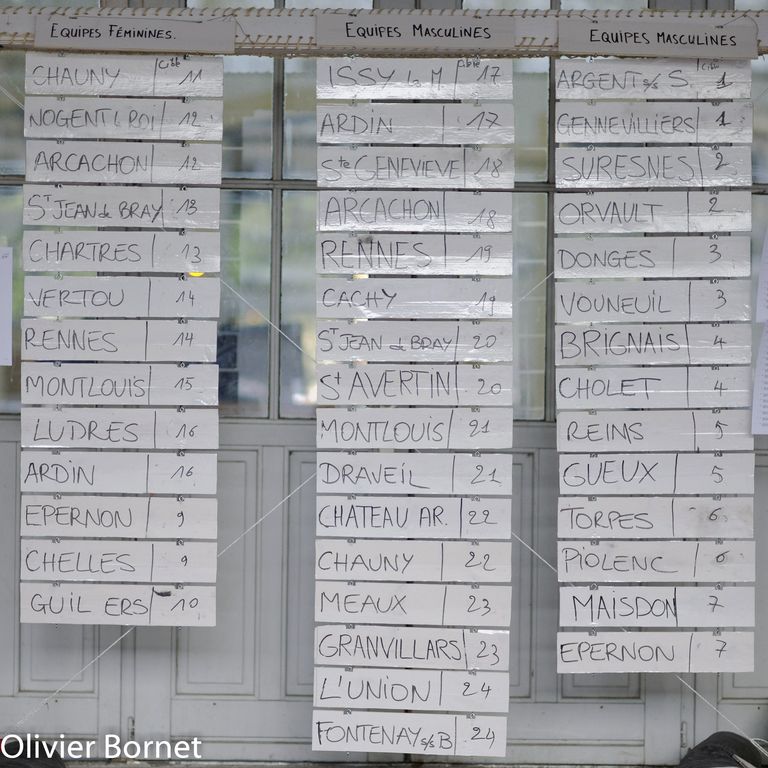 EQUIPES FÉMININES.
CHAUNY 11
NOGENT L ROI 12
ARCACHON 12
ST JEAN de BRAY 13
CHARTRES 13
VERTOU 14
RENNES 14
MONTLOUIS 15
LUDRES 16
ARDIN 16
EPERNON 9
CHELLES 9
GUIL ERS 10
EQUIPES MASCULINES
ISSY les M 17
ARDIN 17
Ste GENEVIEVE 18
ARCACHON 18
RENNES 19
CACHY 19
ST JEAN de BRAY 20
St AVERTIN 20
MONTLOUIS 21
DRAVEIL 21
CHATEAU AR. 22
CHAUNY 22
MEAUX 23
GRANVILLARS 23
L'UNION 24
FONTENAY s/s B 24
EQUIPES MASCULINES
ARGENT s/s S 1
GENNEVILLIERS 1
SURESNES 2
ORVAULT 2
DONGES 3
VOUNEUIL 3
BRIGNAIS 4
CHOLET 4
REINS 5
GUEUX 5
TORPES 6
PIOLENC 6
MAISDON 7
EPERNON 7
Olivier Bornet